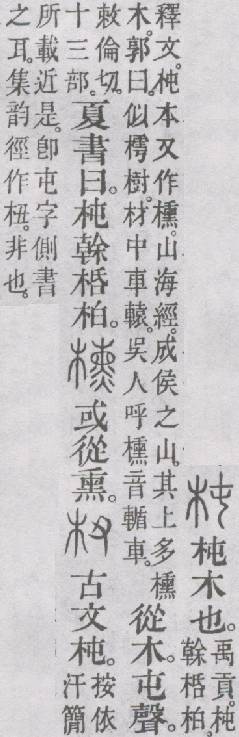 杶木也。
禹貢。杶
榦栝柏。
釋文。杶本又作櫄。山海經。成侯之山。其上多櫄
木。郭曰。似樗樹。材中車轅。吳人呼櫄音輴車。
從木。屯聲。
敕倫切。
十三部。
夏書曰。杶榦栝柏。
或從熏。
古文杶。
按依
汗簡
所載近是。卽屯字側書
之耳。集韵徑作杻。非也。